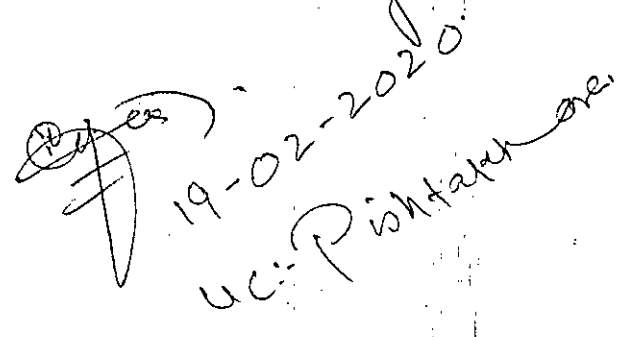 19-02-2020.
UC:- Pishtakhare.